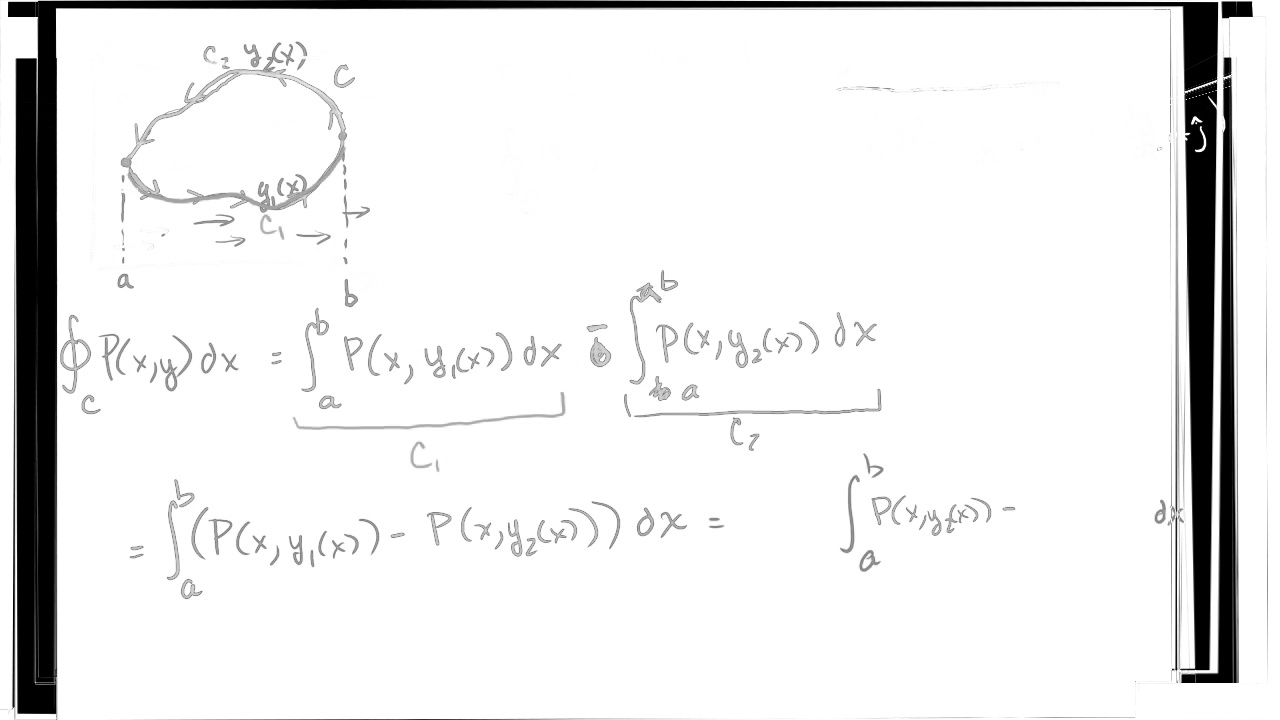 C₂ y₂(x) C
y₁(x)
C₁
a b
∮_C P(x,y) dx = ∫_a^b P(x, y₁(x)) dx - ∫_a^b P(x, y₂(x)) dx
C₁ C₂
= ∫_a^b (P(x, y₁(x)) - P(x, y₂(x))) dx = ∫_a^b P(x, y₂(x)) - dx
+ ĵ )